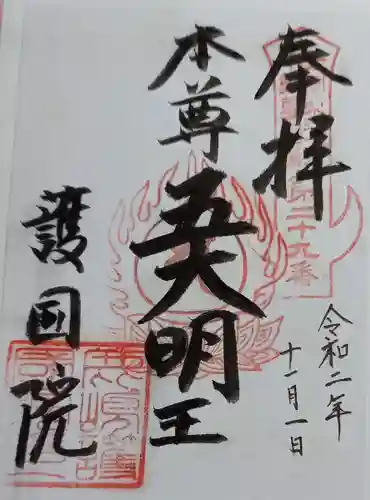 奉拝
本尊
五大明王
護国院
令和二年
十一月一日
第二十九番